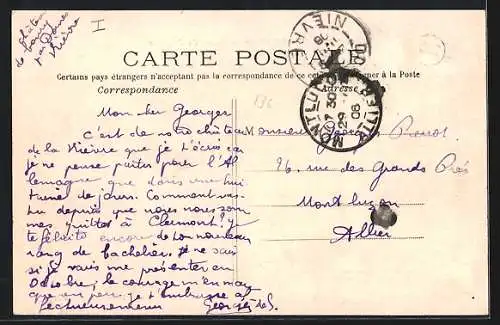 château
de
par Dornes
Nièvre
I
NIEVRE
CARTE POSTALE
Certains pays étrangers n'acceptant pas la correspondance de ce côté, se renseigner à la Poste
Correspondance
Adresse
MONTLUÇON ALLIER
7 30
29
08
136
Mon cher Georges
C'est de notre château
de la Nièvre que je t'écris car
je ne pense partir pour l'Al
lemagne que dans une hui
taine de jours. Comment vas-
tu depuis que nous nous som
mes quittés à Clermont? Je
te félicite encore de ton nouveau
rang de bachelier. Je ne sais
si je vais me présenter en
Octobre; le courage m'en manque
un peu. Je t'embrasse af
fectueusement
Georges de S.
Monsieur Georges
26, rue des Grands Prés
Montluçon
Allier